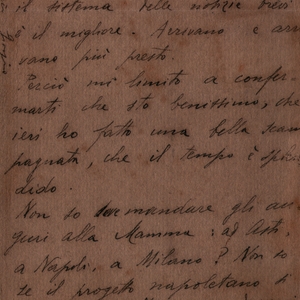 il sistema delle notizie brevi
è il migliore. Arrivano e arri
vano più presto.
Perciò mi limito a confer-
marti che sto benissimo, che
ieri ho fatto una bella scam
pagnata, che il tempo è splen
dido.
Non so mandare gli au
guri alla Mamma: ad Asti,
a Napoli, a Milano? Non so
se il progetto napoletano s